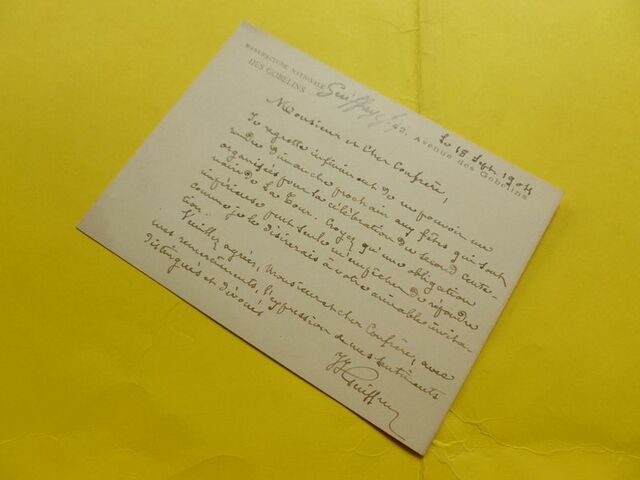 MANUFACTURE NATIONALE
DES GOBELINS
Guiffrey J.
42, Avenue des Gobelins
Le 18 Sept. 1904
Monsieur et Cher Confrère,
Je regrette infiniment de ne pouvoir me
rendre Dimanche prochain aux fêtes qui sont
organisées pour la célébration du second cente-
naire de La Tour. Croyez qu'une obligation
impérieuse peut seule m'empêcher de répondre
comme je le désirerais à votre aimable invita-
tion.
Veuillez agréer, Monsieur et cher Confrère, avec
mes remerciements, l'expression de mes sentiments
distingués et dévoués
JJ Guiffrey